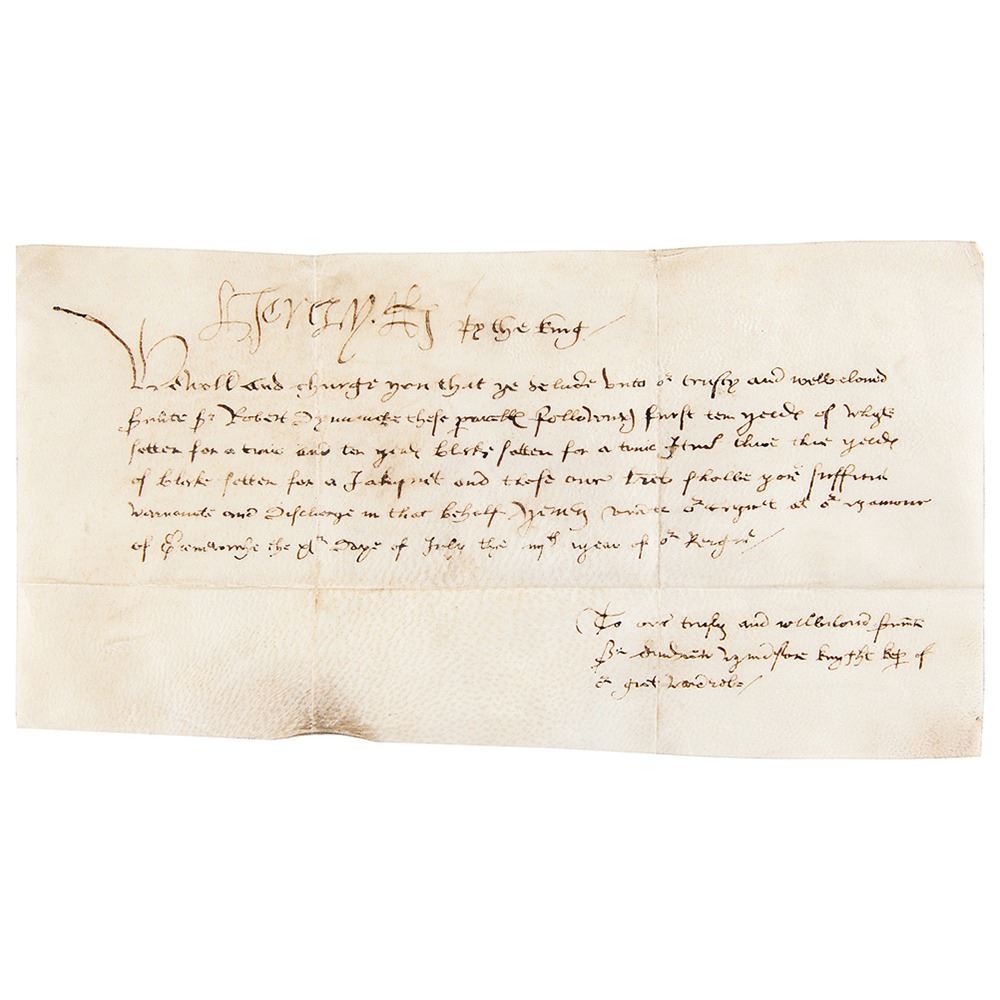 Henry R
By the king
We woll and charge you that ye delivre unto oʳ trusty and welbeloved
svᵃnte Sʳ Robert Dymmocke these parcells following furst ten yerds of whyte
satten for a and ten yerds blacke satten for a Itm thre yerds
of blacke satten for a Jaket and these our lres shalbe yoʳ sufficient
warraunte and discharge in that behalf yeven undre oʳ signet at oʳ manour
of Grenewiche the day of July the yeᵃr of oʳ Reigne
To our trusty and welbiloved svᵃnte
Sʳ Andrewe Wyndsore knyght kepꝰ of
oʳ gret warderobe